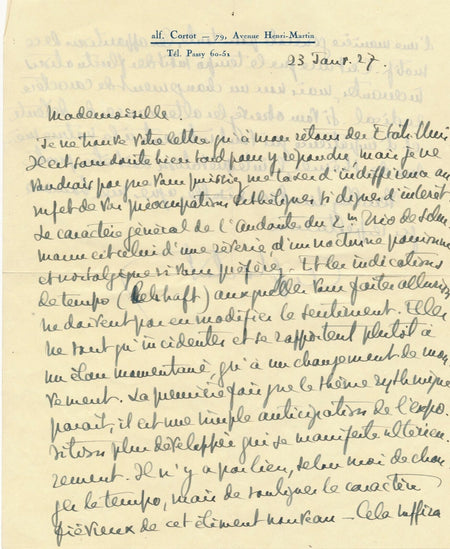 alf. Cortot — 79, Avenue Henri-Martin
Tél. Passy 60-51
23 Janv. 27.
Mademoiselle.
Je ne trouve votre lettre qu'à mon retour des Etats Unis
Il est sans doute bien tard pour y répondre, mais je ne
voudrais pas que vous puissiez me taxer d'indifférence au
sujet de vos préoccupations esthétiques si dignes d'intérêt.
Le caractère général de l'Andante du 2me Trio de Schu-
mann est celui d'une rêverie, d'un nocturne passionné
et nostalgique si vous préférez. Et les indications
de tempo (Lebhaft) auxquelles vous faites allusion
ne doivent pas en modifier le sentiment. Elles
ne sont qu'incidentes et se rapportent plutôt à
un élan momentané, qu'à un changement de mou-
vement. La première fois que le thème rythmique
paraît, il est une simple anticipation de l'expo-
sition plus développée qui se manifeste ultérieu-
rement. Il n'y a pas lieu, selon moi de chan-
ger le tempo, mais de souligner le caractère
fiévreux de cet élément nouveau — Cela suffira